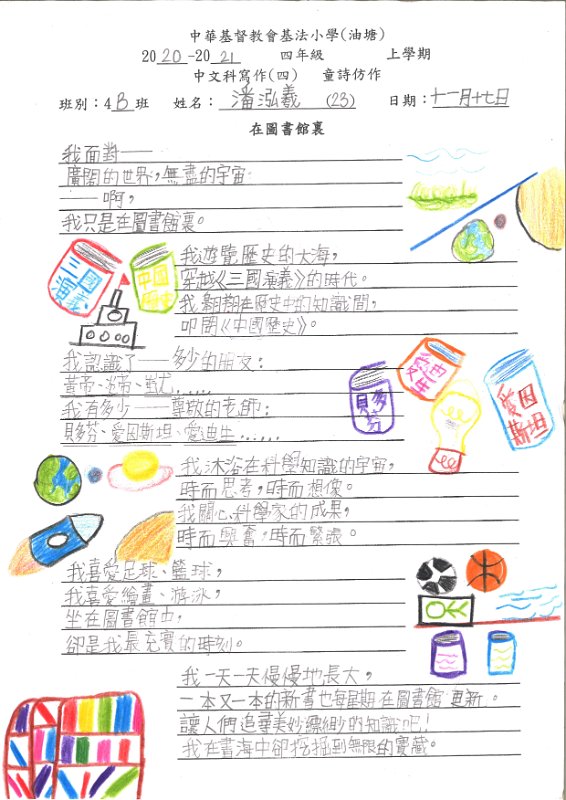 中華基督教會基法小學(油塘)
2020-2021 四年級 上學期
中文科寫作(四) 童詩仿作
班別:4B班 姓名:潘泓羲 (23) 日期:十一月十七日
在圖書館裏
我面對——
廣闊的世界,無盡的宇宙
——啊,
我只是在圖書館裏。
我遊覽歷史的大海,
穿越《三國演義》的時代。
我翱翔在歷史中的知識間,
叩開《中國歷史》。
三國演義
中國歷史
我認識了——多少的朋友:
黃帝、炎帝、蚩尤……
我有多少——尊敬的老師:
貝多芬、愛因斯坦、愛迪生……
貝多芬
愛迪生
愛因斯坦
我沐浴在科學知識的宇宙,
時而思考,時而想像。
我關心科學家的成果,
時而興奮,時而緊張。
我喜愛足球、籃球,
我喜愛繪畫、游泳,
坐在圖書館中,
卻是我最充實的時刻。
我一天一天慢慢地長大,
一本又一本的新書也每星期在圖書館更新。
讓人們追尋美妙縹緲的知識吧!
我在書海中卻挖掘到無限的寶藏。